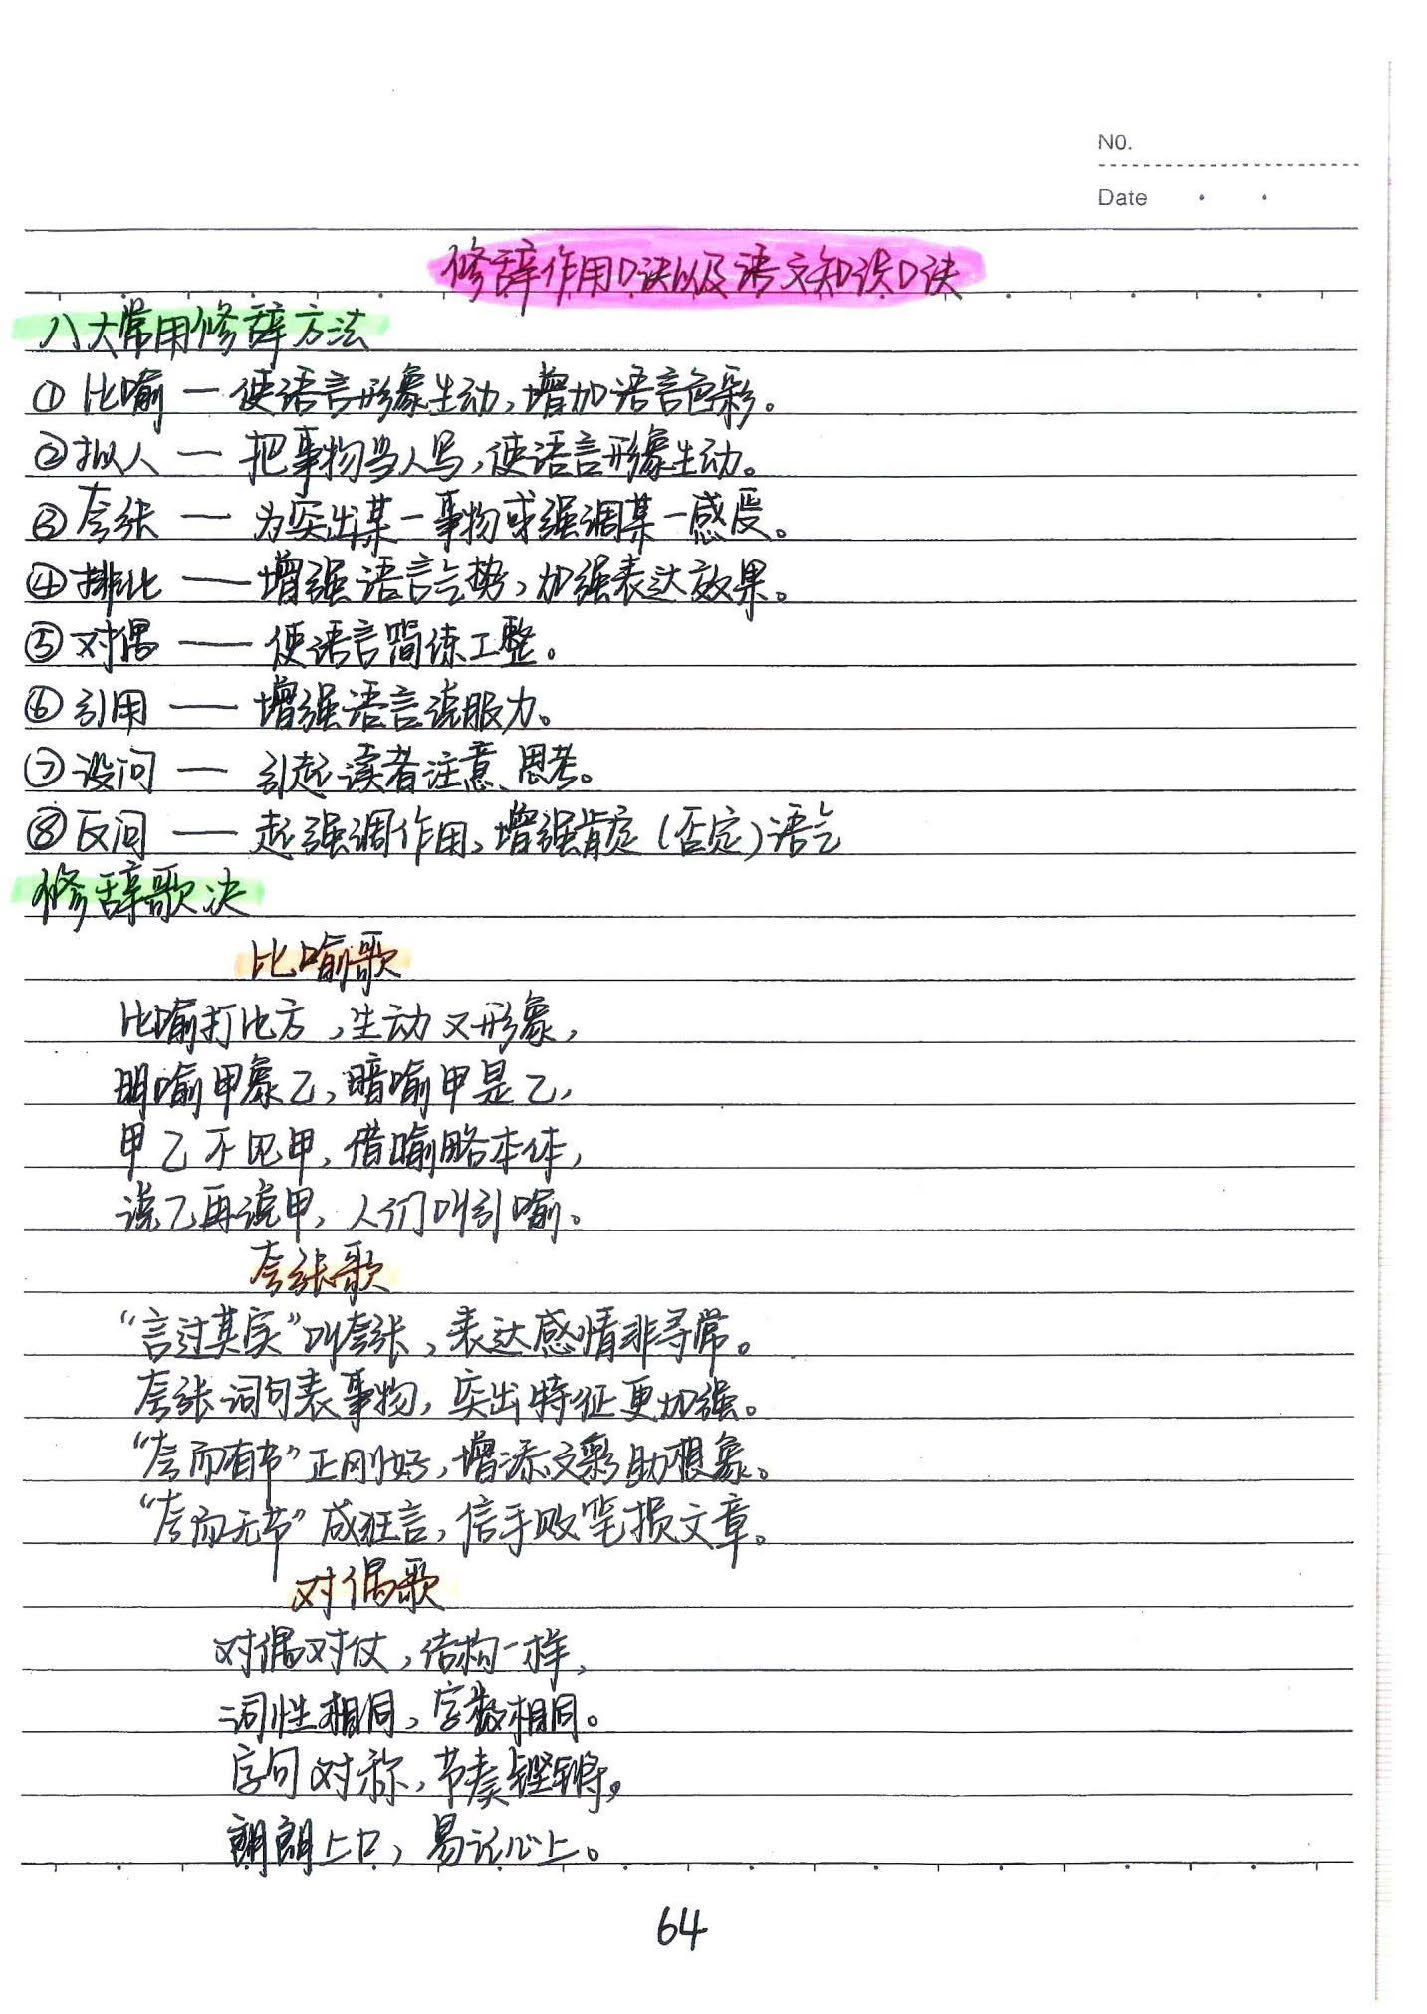 NO.
Date
修辞作用口诀以及语文知识口诀
八大常用修辞方法
①比喻 — 使语言形象生动,增加语言色彩。
②拟人 — 把事物当人写,使语言形象生动。
③夸张 — 为突出某一事物或强调某一感受。
④排比 — 增强语言气势,加强表达效果。
⑤对偶 — 使语言简练工整。
⑥引用 — 增强语言说服力。
⑦设问 — 引起读者注意、思考。
⑧反问 — 起强调作用,增强肯定(否定)语气
修辞歌决
比喻歌
比喻打比方,生动又形象,
明喻甲象乙,暗喻甲是乙,
甲乙不见甲,借喻略本体,
说乙再说甲,人们叫引喻。
夸张歌
“言过其实”叫夸张,表达感情非寻常。
夸张词句表事物,突出特征更加强。
“夸而有节”正刚好,增添文彩助想象。
“夸而无节”成狂言,信手败笔损文章。
对偶歌
对偶对仗,结构一样,
词性相同,字数相同。
字句对称,节奏铿锵,
朗朗上口,易记心上。
64